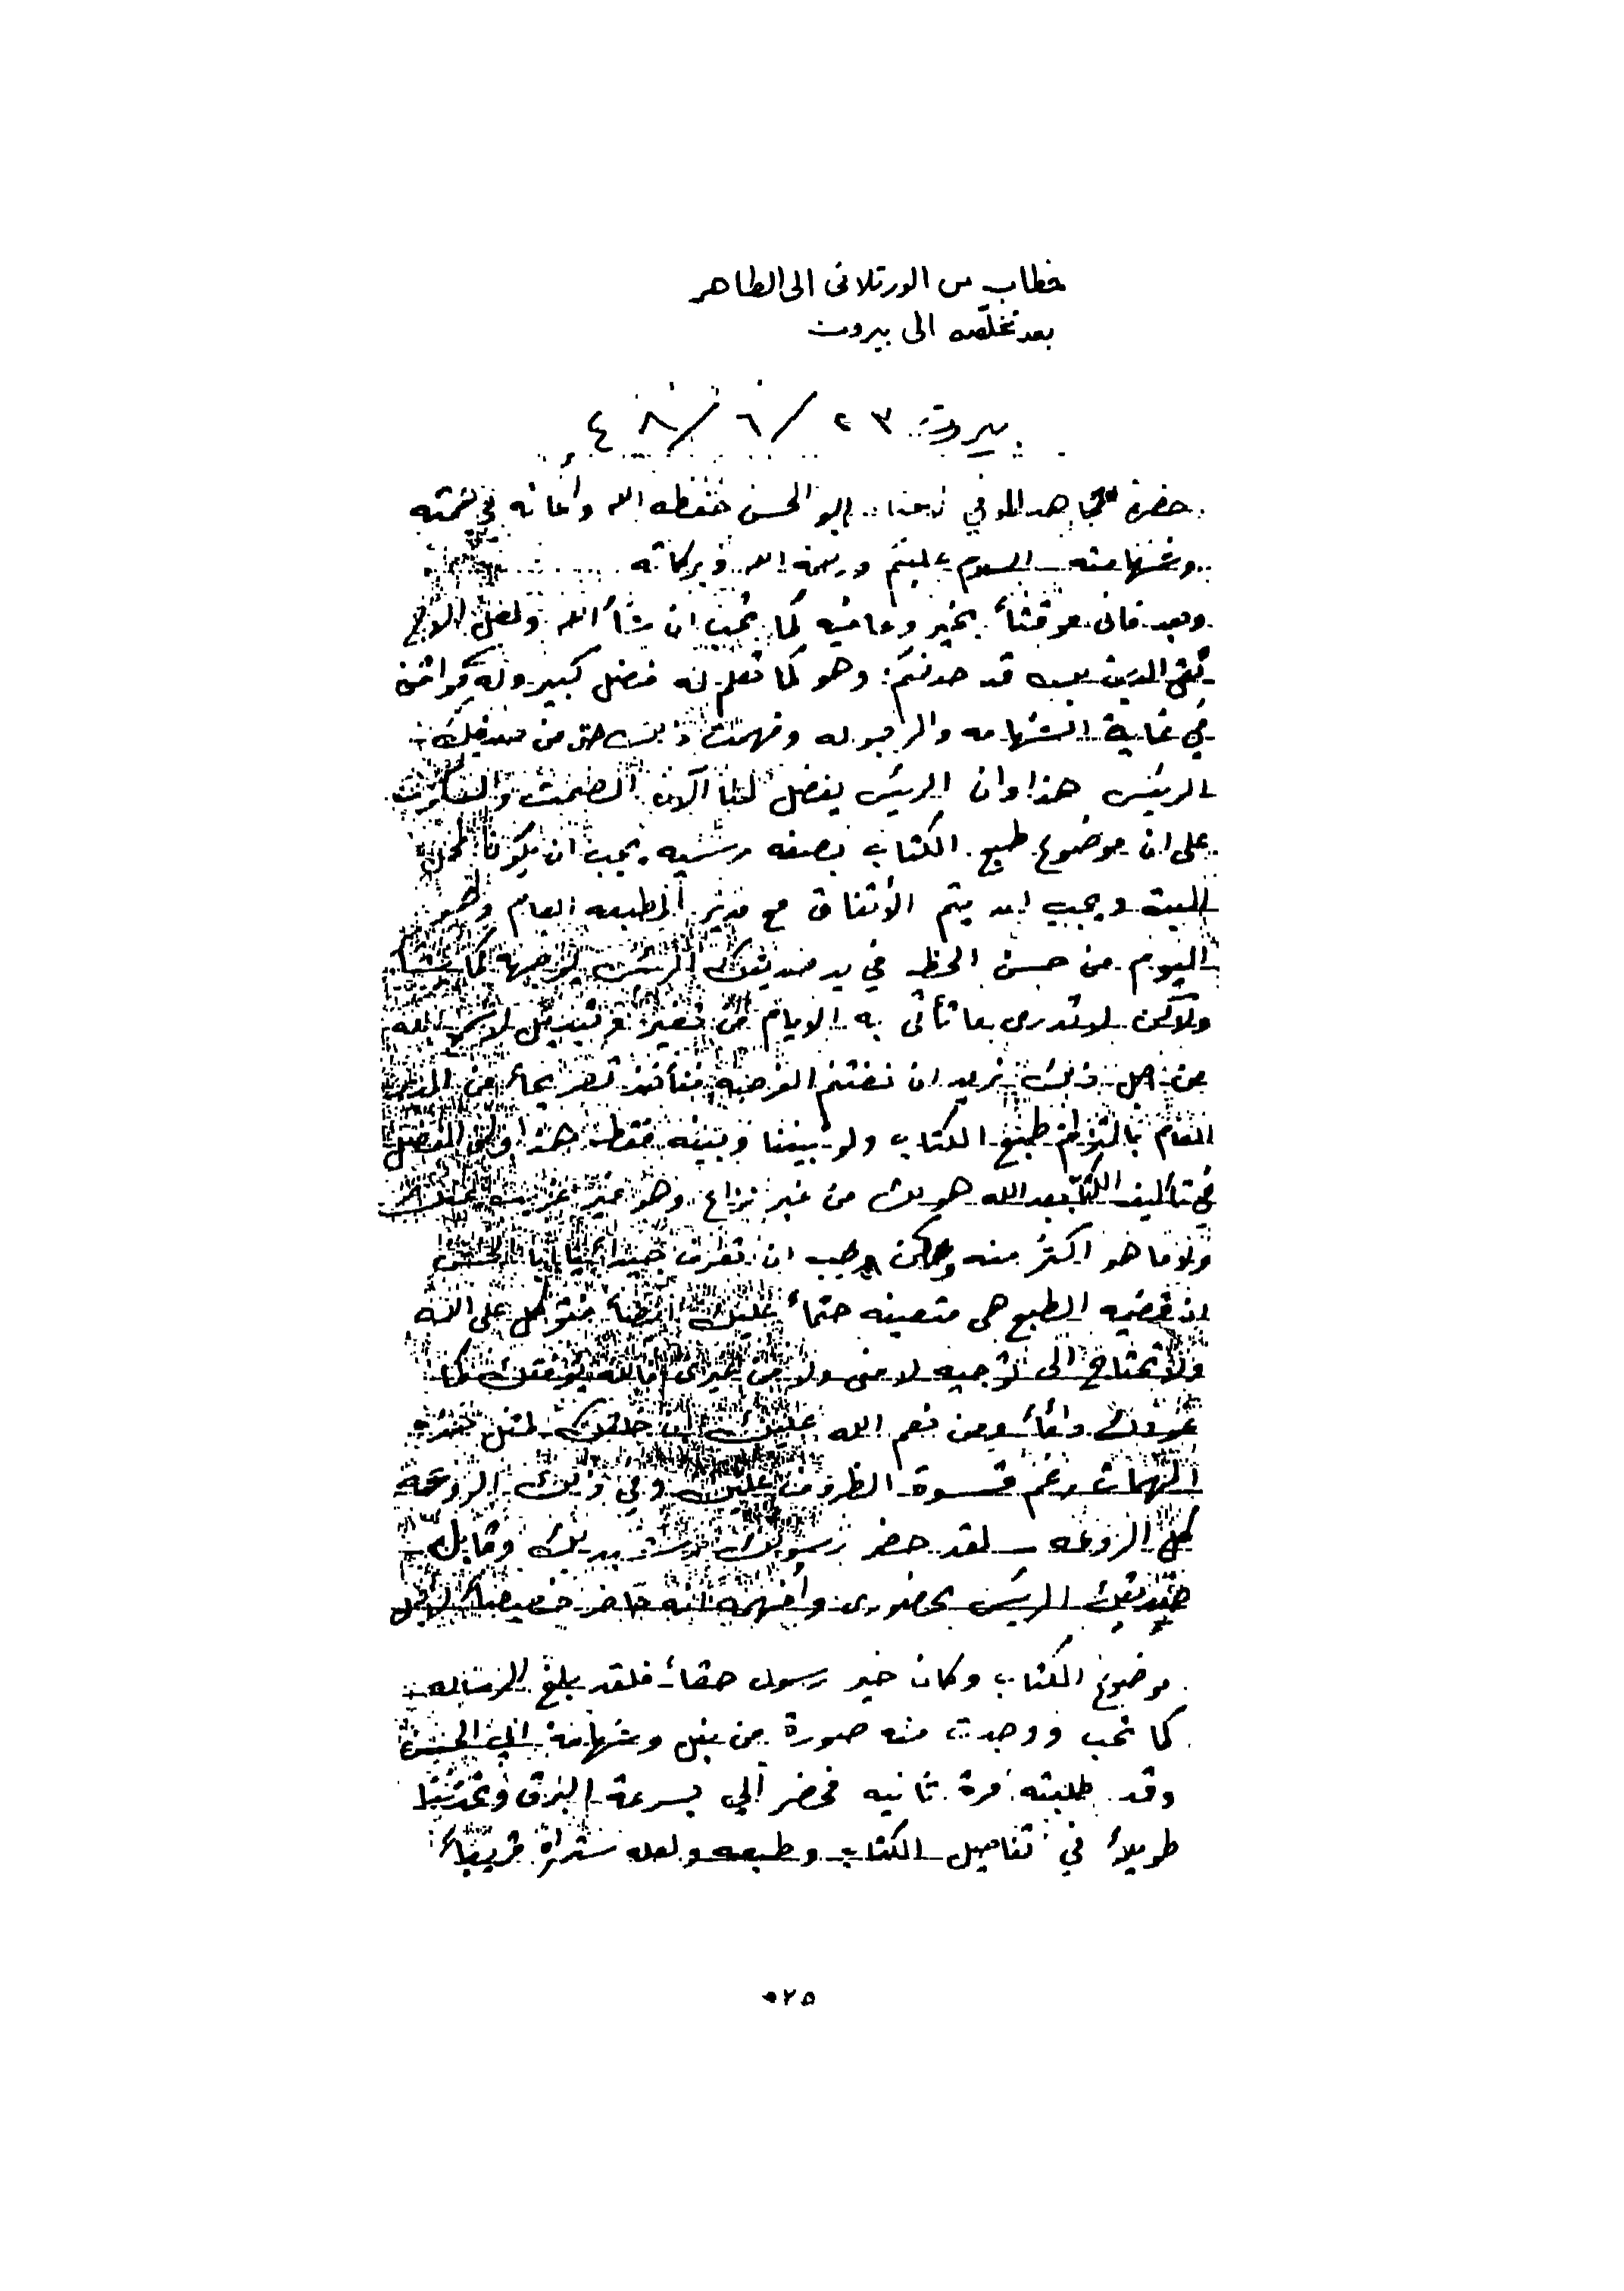 خطاب من الورتلانى الى الطاهر
بعد تخلّصه الى بيروت
بيروت ٢٣/٦/٤٨
حضرة المجاهد الموفي ابو الحسن حفظه الله وأعانه في
وشهامته السلام عليكم ورحمة الله وبركاته
وبعد فانى موقتاً بخير وعافيه كما تحب ان شاء الله ولعل الاخ
تقى الدين قد حدثكم وهو كما تعلم له فضل كبير وله
في غاية الشهامه والرجوله وفهمت ذلك حتى من صديقك
الرئيس هذا وان الرئيس يفضل لنا الآن الصمت والسكوت
على ان موضوع طبع الكتاب بصفه رسميه يجب ان يكون
البته ويجب ان يتم الأتفاق مع مدير المطبعه العام وهو
اليوم من حسن الحظ في يد صديقك الرئيس يوجهها كما يشاء
ولاكن لا تدرى ما تأتى به الايام من تغير وتبديل لا سمح الله
من اجل ذلك نريد ان نغتنم الفرصه فنأخذ تصريحاً من المدير
العام بالتزام طبع الكتاب ولو بيننا وبينه فقط هذا وان الفضل
في تأليف الكتاب بعد الله هو لك من غير نزاع وهو غير غريب
ولا ما هو اكثر منه ولكن يجب ان تعرف جيداً يا ابا الحسن
ان قضيه الطبع هى متعينه حتماً عليك ايضاً فتوكل على الله
ولا تحتاج الى توجيه لا منى ولا من غيرى فالله يوفقك كما
عودك دائماً ومن نعم الله عليك ان خلقك لمثل هذه
المهمات رغم قسوة الظروف عليك وفي ذلك الروعه
كل الروعه – لقد حضر رسولك وقابل
صديقك الرئيس بحضورى وأفهمه انه حاضر خصيصاً لأجل
موضوع الكتاب وكان خير رسول حقاً فلقد بلغ الرساله
كما تحب ووجدت منه صورة من نبل وشهامة ابي الحسن
وقد طلبته مرة ثانيه فحضر الي بسرعة البرق وتحدثنا
طويلاً في تفاصيل الكتاب وطبعه ولعله ستراه قريباً
٥٢٥